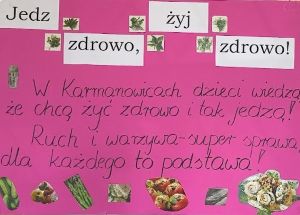 Jedz żyj
zdrowo, zdrowo!
W Karmanowicach dzieci wiedzą
że chcą żyć zdrowo i tak jedzą!
Ruch i warzywa-super sprawa,
dla każdego to podstawa!